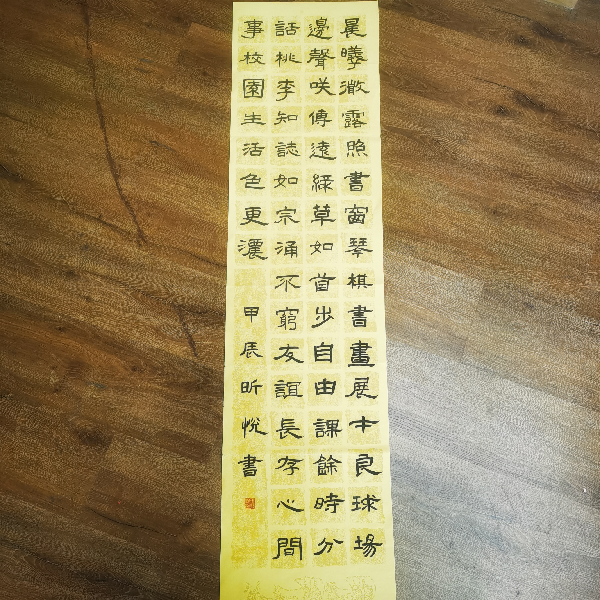 晨曦微露照書窗琴棋書畫展才良球場
邊聲咲傳遠綠草如茵步自由課餘時分
話桃李知誌如宗涌不窮友誼長存心間
事校園生活色更濃
甲辰昕悅書